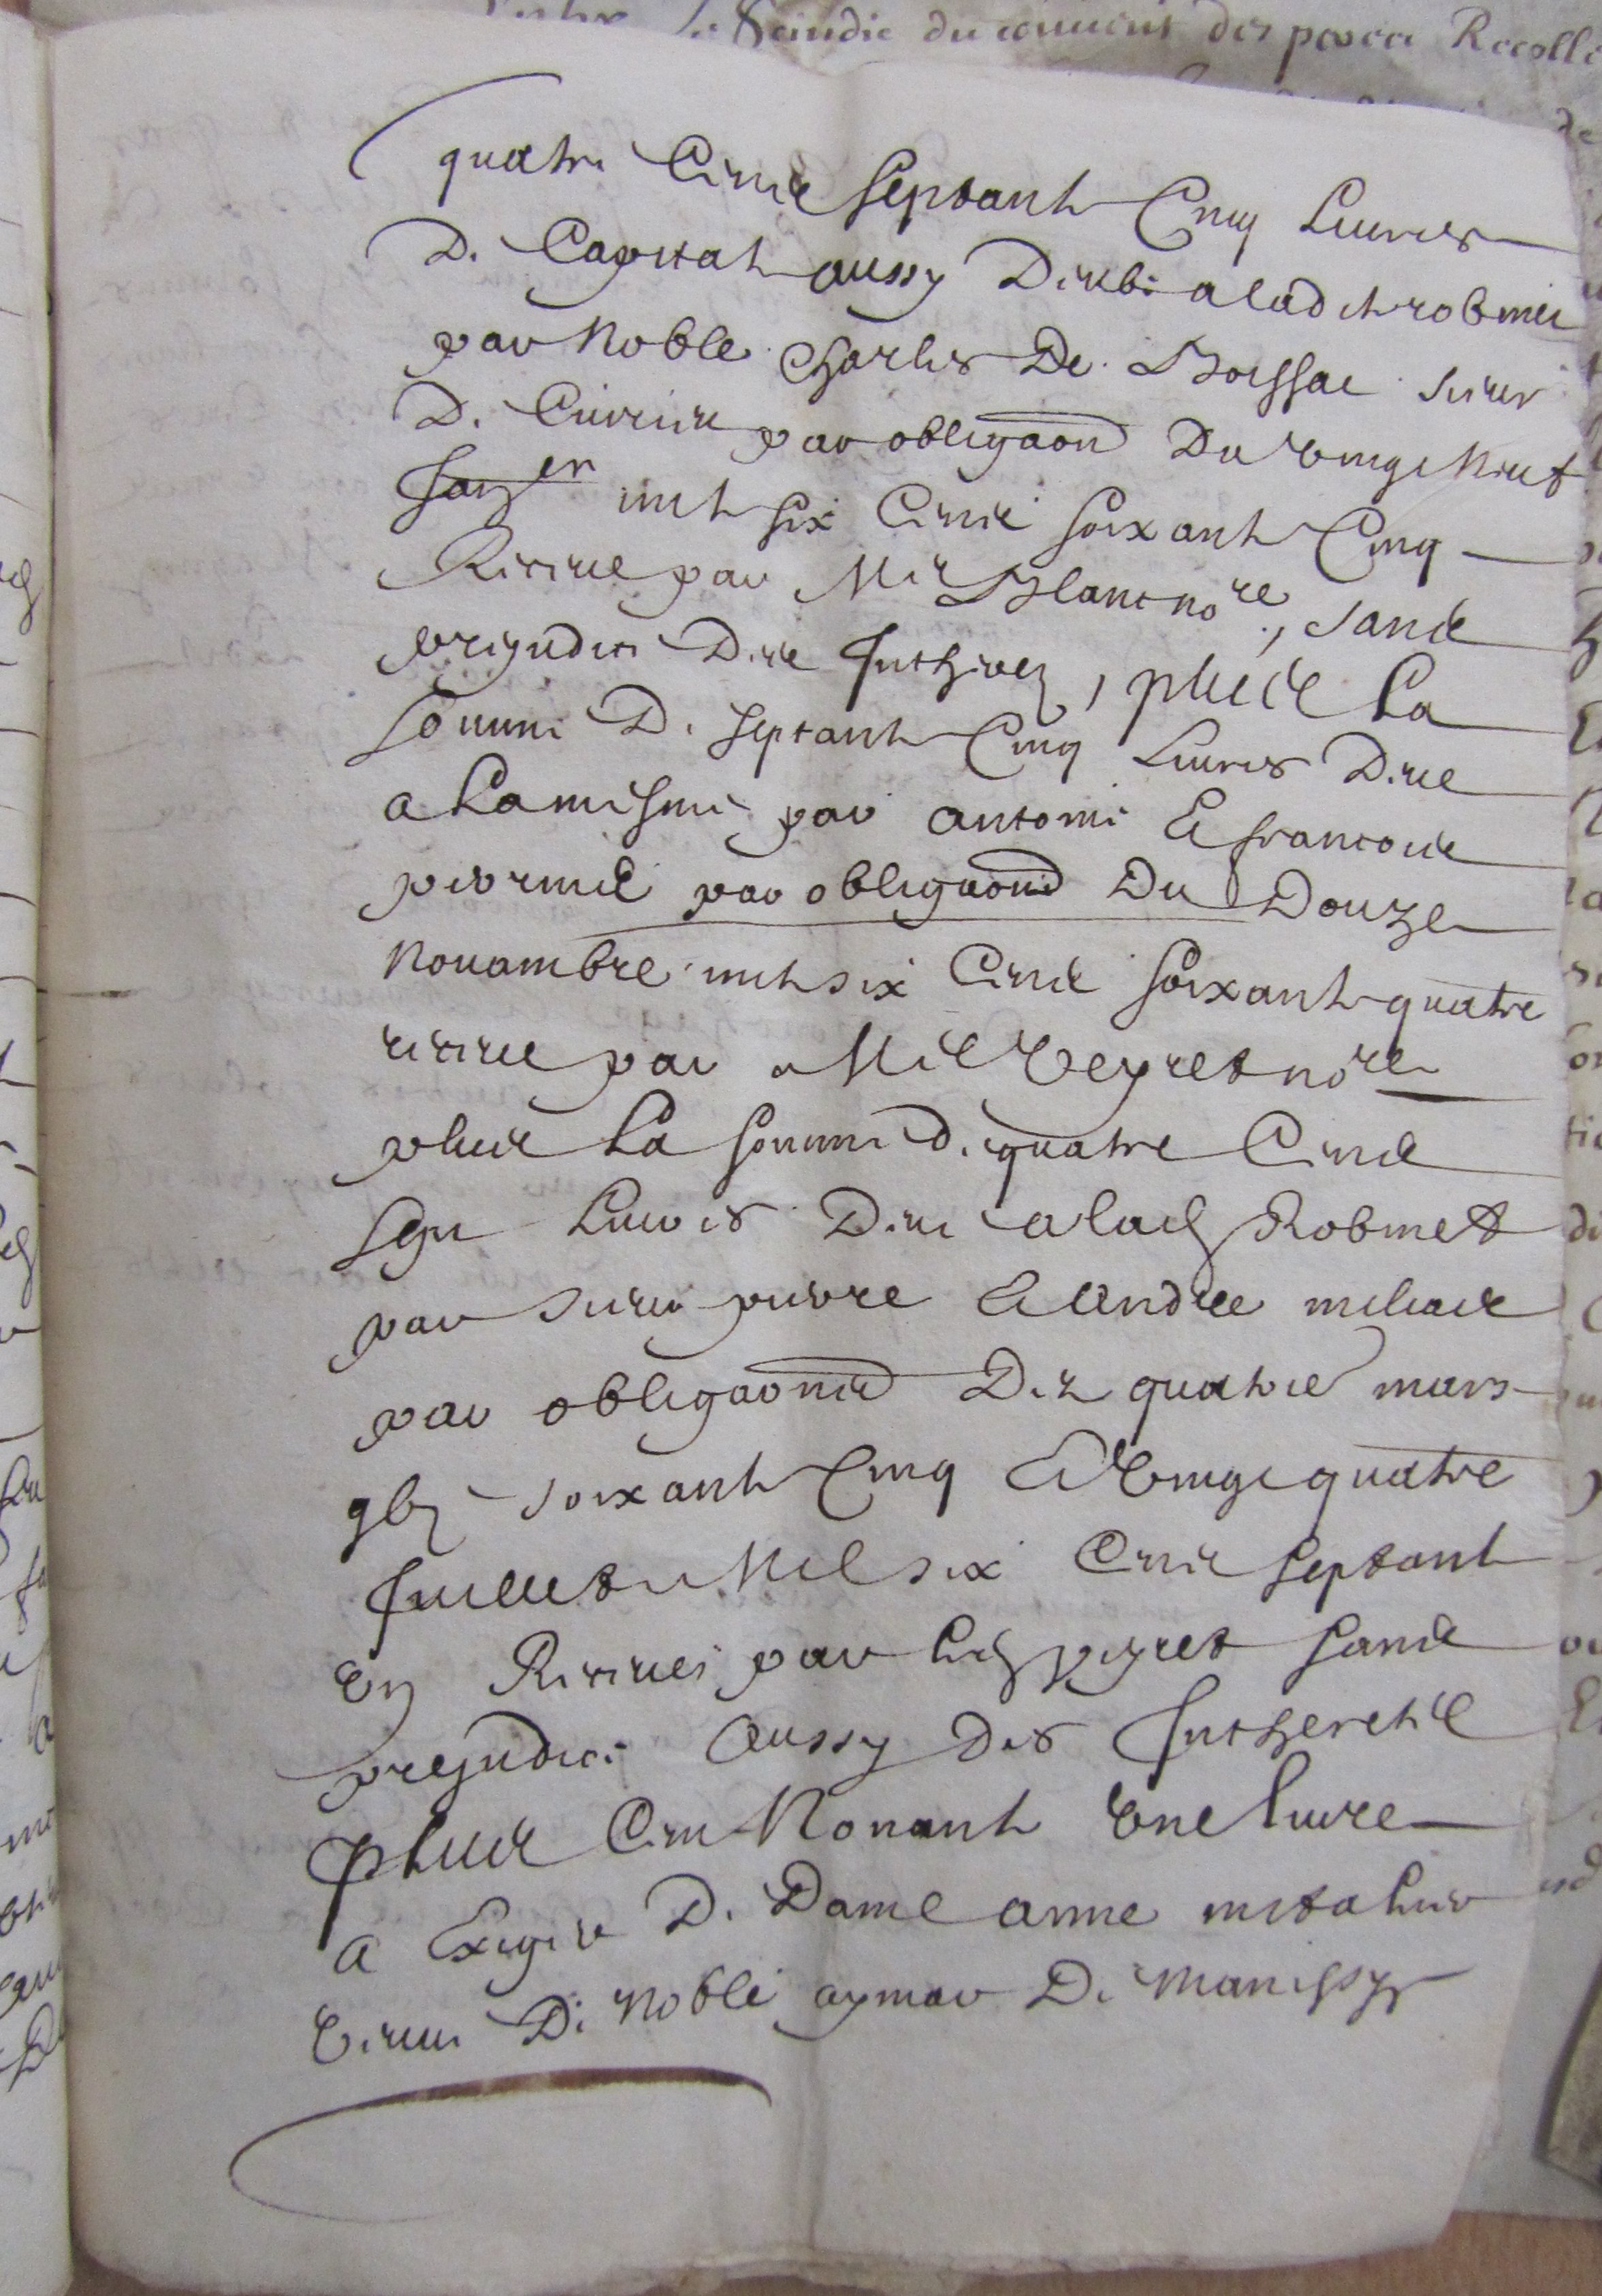 quatre Cens septante Cinq Livres
De Capital aussy Deubs a ladite robinet
par Noble Charles De Boissac sieur
De Cuirieu par obligaon Du vingt neuf
Janer mil six Cens soixante Cinq
Receue par Me Blanc nore, sans
prejudice Des Intherez, plus La
somme De septante Cinq Livres Deue
a La mesme par antoine Et francois
par obligaons Du Douze
Novambre mil six Cens soixante quatre
receue par Me Veyret nore
plus La somme De quatre Cens
sept Livres Deue a lad Robinet
par sieurs pierre Et Andre
par obligaons Des quatre mars
soixante Cinq Et Vingt quatre
Juillet Mil six Cens septante
Un Receues par led veyret sans
prejudice Aussy Des Intherests
plus Cent Nonante Une livre
a Exiger De Dame anne
veuve De Noble aymar De Manissy